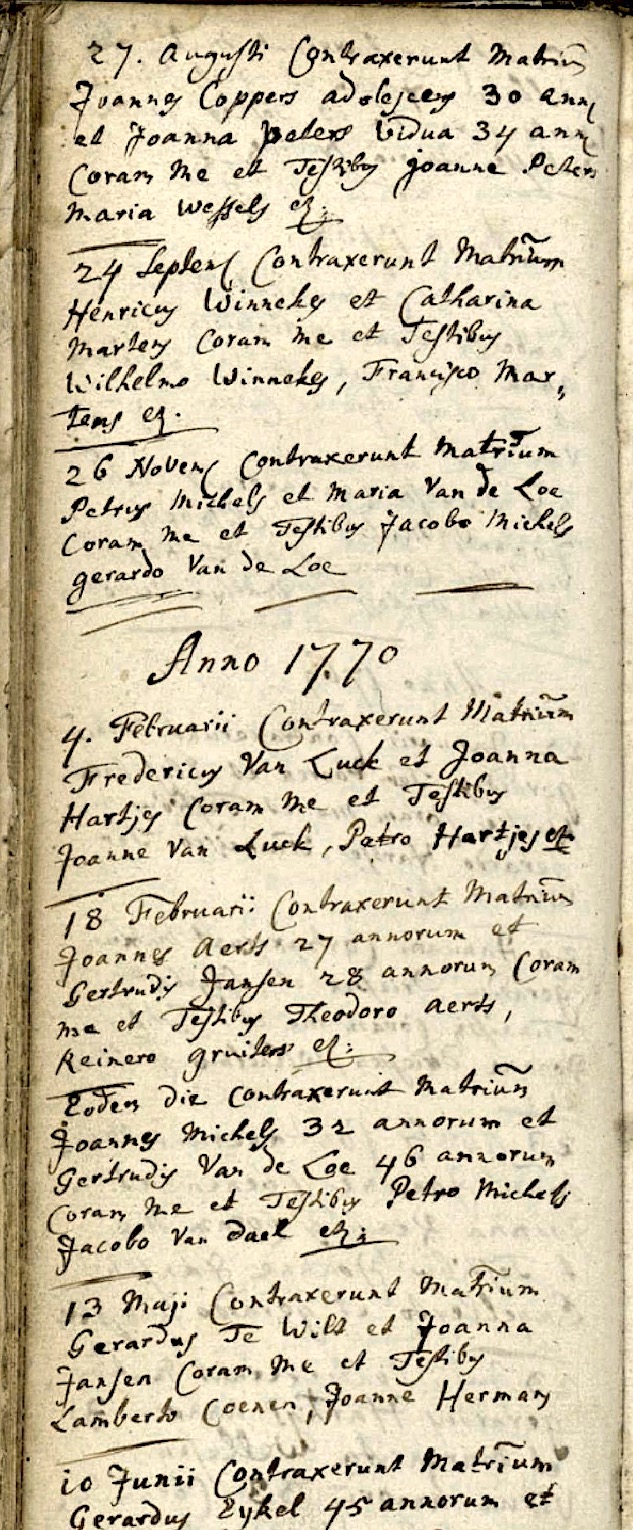 27. Augusti Contraxerunt Matriūm
Joannes Coppers adolescens 30 ann
et Joanna peters Vidua 34 ann
Coram me et Testibus joanne Peters
Maria Wessels etc:
24 Septem Contraxerunt Matriūm
Henricus Winnekes et Catharina
Martens Coram me et Testibus
Wilhelmo Winnekes, Francisco Mar„
tens etc.
26 Novem Contraxerunt Matriūm
Petrus Michels et Maria Van de Loe
Coram me et Testibus Jacobo Michels
gerardo Van de Loe
Anno 1770
4. Februarii Contraxerunt Matriūm
Fredericus Van Luck et Joanna
Hartjes Coram me et Testibus
Joanne Van Luck, Petro Hartjes etc
18 Februarii Contraxerunt Matriūm
Joannes Aerts 27 annorum et
Gertrudis Jansen 28 annorum Coram
me et Testibus Theodoro Aerts,
Reinero gruiters etc:
Eodem die Contraxerunt Matriūm
Joannes Michels 32 annorum et
Gertrudis Van de Loe 46 annorum
Coram me et Testibus Petro Michels
Jacobo Van Dael etc:
13 Maji Contraxerunt Matriūm
Gerardus Te Wilt et Joanna
Jansen Coram me et Testibus
Lamberto Coenen, Joanne Hermans
10 Junii Contraxerunt Matriūm
Gerardus Eykel 45 annorum et